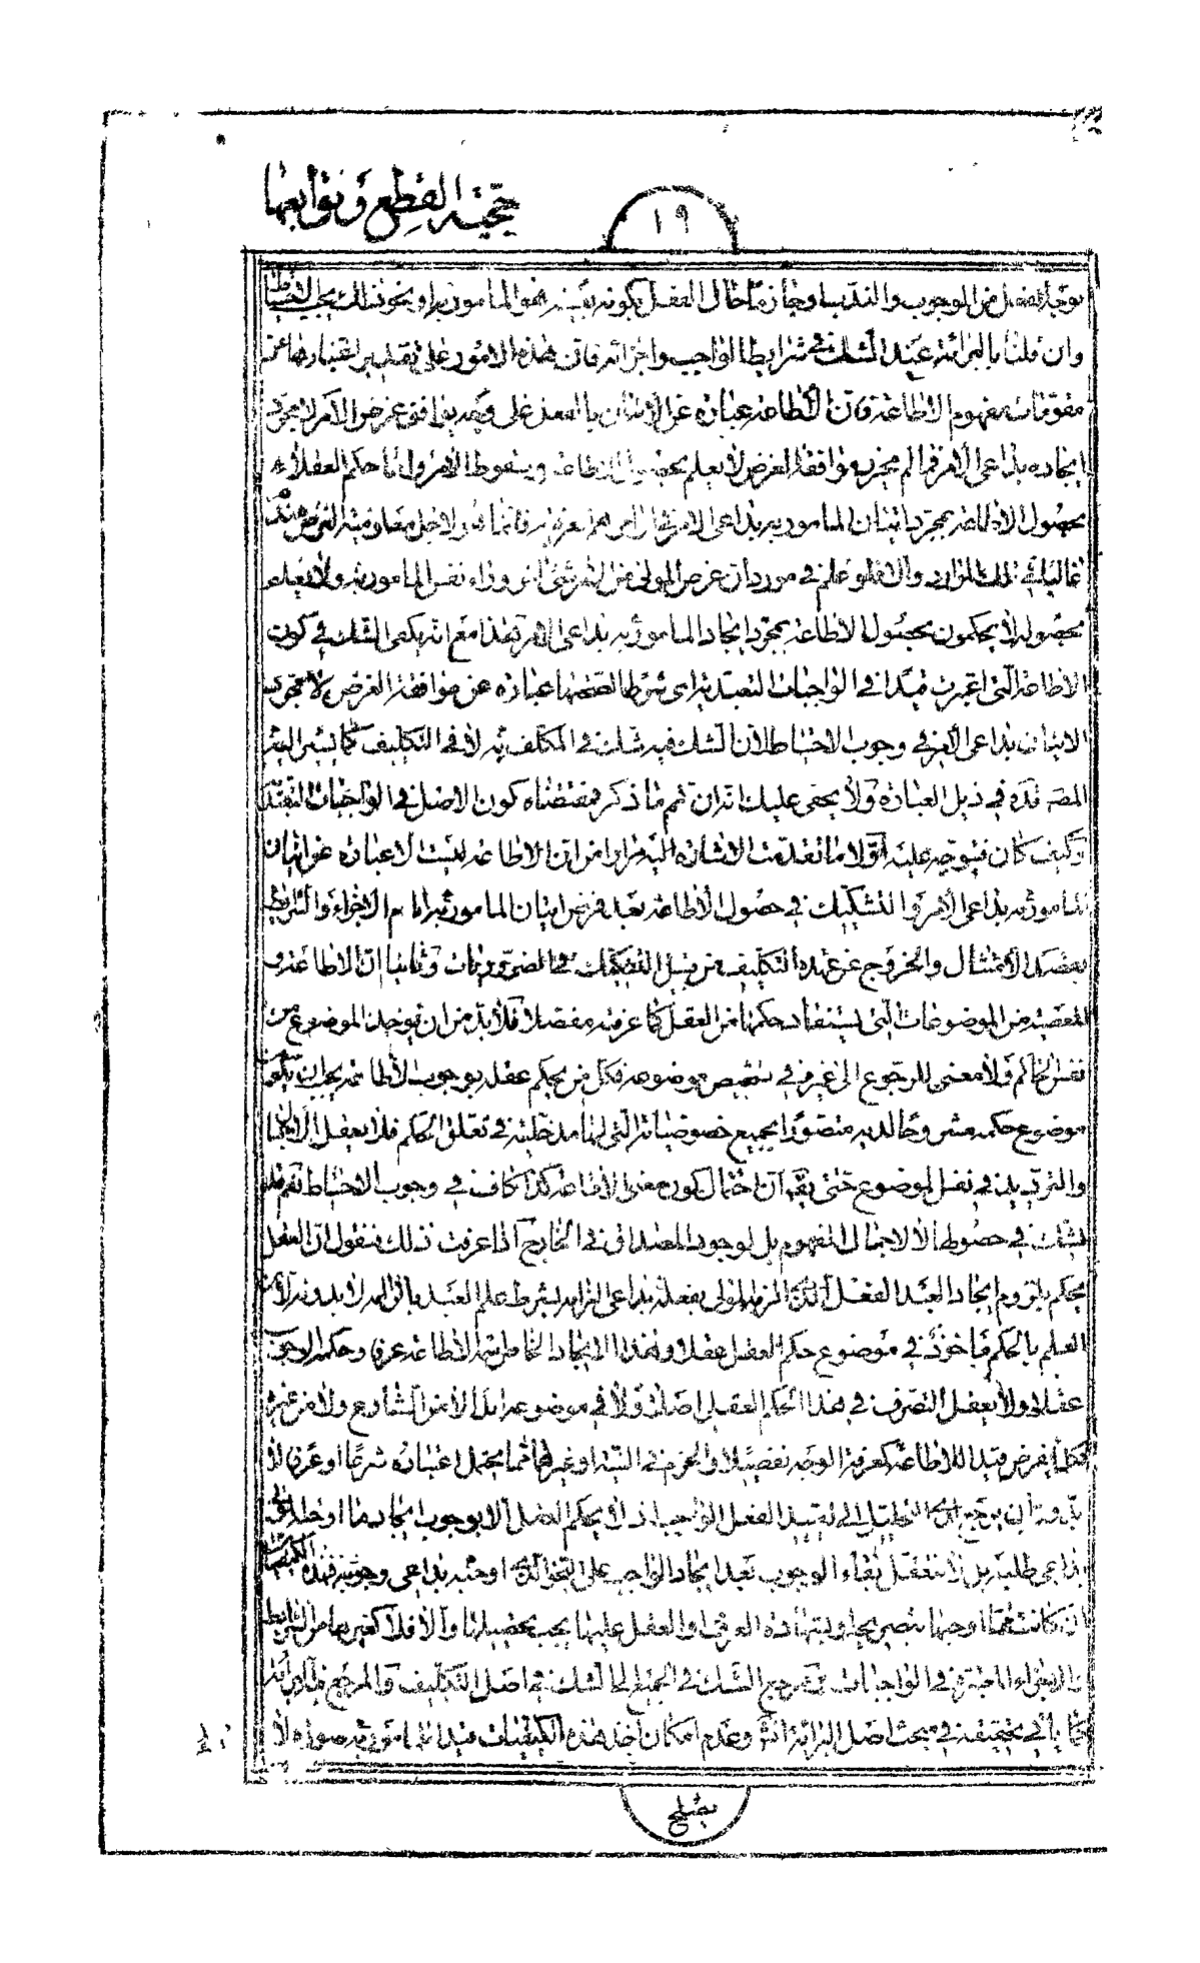 حجية القطع وتوابعها
١٩
بوجه الفعل من الوجوب والندب وجازما حال الفعل بكونه بعينه هو المأمور به ونحو ذلك يجب الاحتياط
وان قلنا بالبرائة عند الشك في شرايط الواجب واجزائه فان هذه الامور على تقدير اعتبارها من
مقومات مفهوم الاطاعة فان الاطاعة عبارة عن الاتيان بالفعل على وجه يوافق غرض الآمر لا مجرد
ايجاده بداعي الامر فما لم يحرز موافقة الغرض لا يعلم بحصول الاطاعة وسقوط الامر وانما حكم العقلاء
بحصول الاطاعة بمجرد اتيان المأمور به بداعي الامر في اوامر فانما هو لاجل معلومية الغرض عندهم
غالبا في تلك الموارد والا فلو علم في مورد ان غرض المولى من الامر شئ اخر وراء نفس المأمور به ولا يعلم
بحصوله لا يحكمون بحصول الاطاعة بمجرد ايجاد المأمور به بداعي الامر هذا مع انه يكفي الشك في كون
الاطاعة التي اعتبرت قيدا في الواجبات التعبدية اى شرطا لصحتها عبارة عن موافقة الغرض لا مجرد
الاتيان بداعي الامر في وجوب الاحتياط لان الشك فيه شك في المكلف به لا في التكليف كما يشير اليه
المصـ قده في ذيل العبارة ولا يخفى عليك انه ان تم ما ذكر فمقتضاه كون الاصل في الواجبات التعبد
وكيف كان فيتوجه عليه اولا ما تقدمت الاشارة اليه مرارا من ان الاطاعة ليست الا عبارة عن اتيان
المأمور به بداعي الامر والتشكيك في حصول الاطاعة بعد فرض اتيان المأمور به بتمام الاجزاء والشرايط
بقصد الامتثال والخروج عن عهدة التكليف من قبيل التشكيك في الضروريات وثانيا ان الاطاعة و
المعصية من الموضوعات التي يستفاد حكمها من العقل كما عرفته مفصلا فلا بد من ان يؤخذ الموضوع من
نفس الحاكم ولا معنى للرجوع الى غيره في تشخيص موضوعه فكل من يحكم عقله بوجوب الاطاعة يجب ان يكون
موضوع حكمه مشروحا لديه متصورا بجميع خصوصياته التي لها مدخلية في تعلق الحكم فلا يعقل الاجمال
والترديد في نفس الموضوع حتى يقـ ان احتمال كون معنى الاطاعة كذا كاف في وجوب الاحتياط نعم قد
يشك في حصولها لا لاجمال المفهوم بل لوجود المصداق في الخارج اذا عرفت ذلك فنقول ان العقل
يحكم بلزوم ايجاد العبد الفعل الذي الزمه المولى بفعله بداعي الزامه بشرط علم العبد بالزامه لا بدونه لان
العلم بالحكم مأخوذ في موضوع حكم العقل عقلا وهذا الايجاد الخاص اسمه الاطاعة عرفا وحكمه الوجوب
عقلا ولا يعقل التصرف في هذا الحكم العقلى اصلا ولا في موضوعه ابدا لا من الشارع ولا من غيره
فكلما يفرض قيدا للاطاعة كمعرفة الوجه تفصيلا والجزم في النية وغيرهما مما يحتمل اعتباره شرعا او عرفا لا
بد من ان يرجع التحليل الى تقييد الفعل الواجب اذ لا يحكم العقل الا بوجوب ايجاد ما اوجبه المولى
بداعي طلبه بل لا نتعقل بقاء الوجوب بعد ايجاد الواجب على النحو الذي اوجبه بداعي وجوبه فهذه الكيفيات
ان كانت مما اوجبها بتصريحه او بشهادة العرف او العقل عليها يجب تحصيلها والا فلا كغيرها من الشرايط
والاجزاء المعتبرة في الواجبات فمرجع الشك في الجميع الى الشك في اصل التكليف والمرجع فيها البرائة
كما يأتي تحقيقه في مبحث اصل البرائة انشـ وعدم امكان اخذ هذه الكيفيات قيدا للمأمور به صورة لا
يصلح